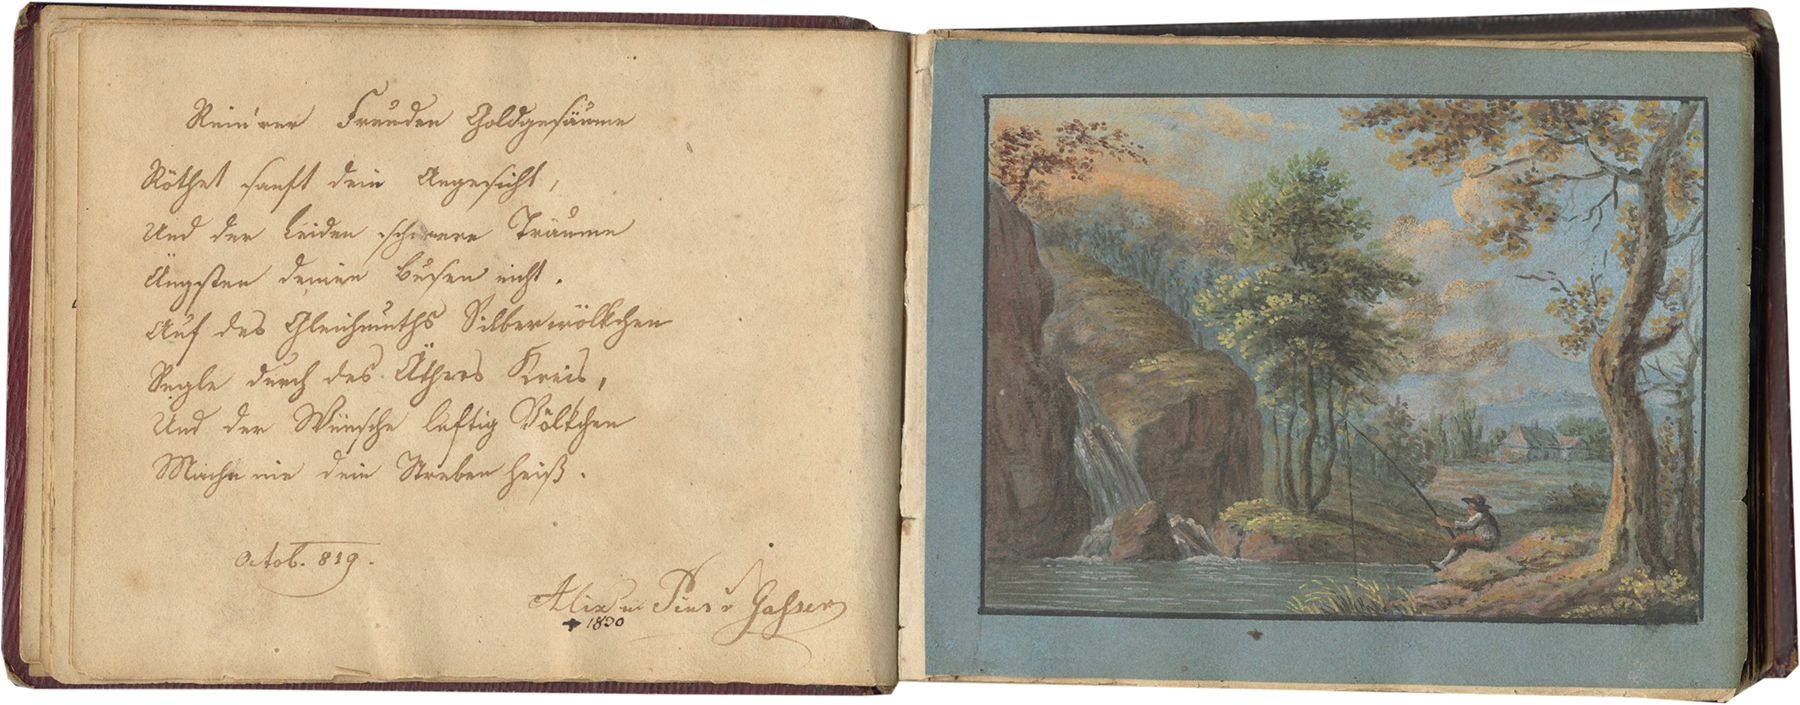 Rein'rer Freuden Goldgesäume
Röthet sanft dein Angesicht,
Und der Leiden schwere Träume
Ängsten deinen Busen nicht.
Auf des Gleichmuths Silberwölkchen
Segle durch des Äthers Kreis,
Und der Wünsche luftig Völkchen
Mache nie dein Streben heiß.
Octob. 819.
Pius v Gasser
✝ 1830